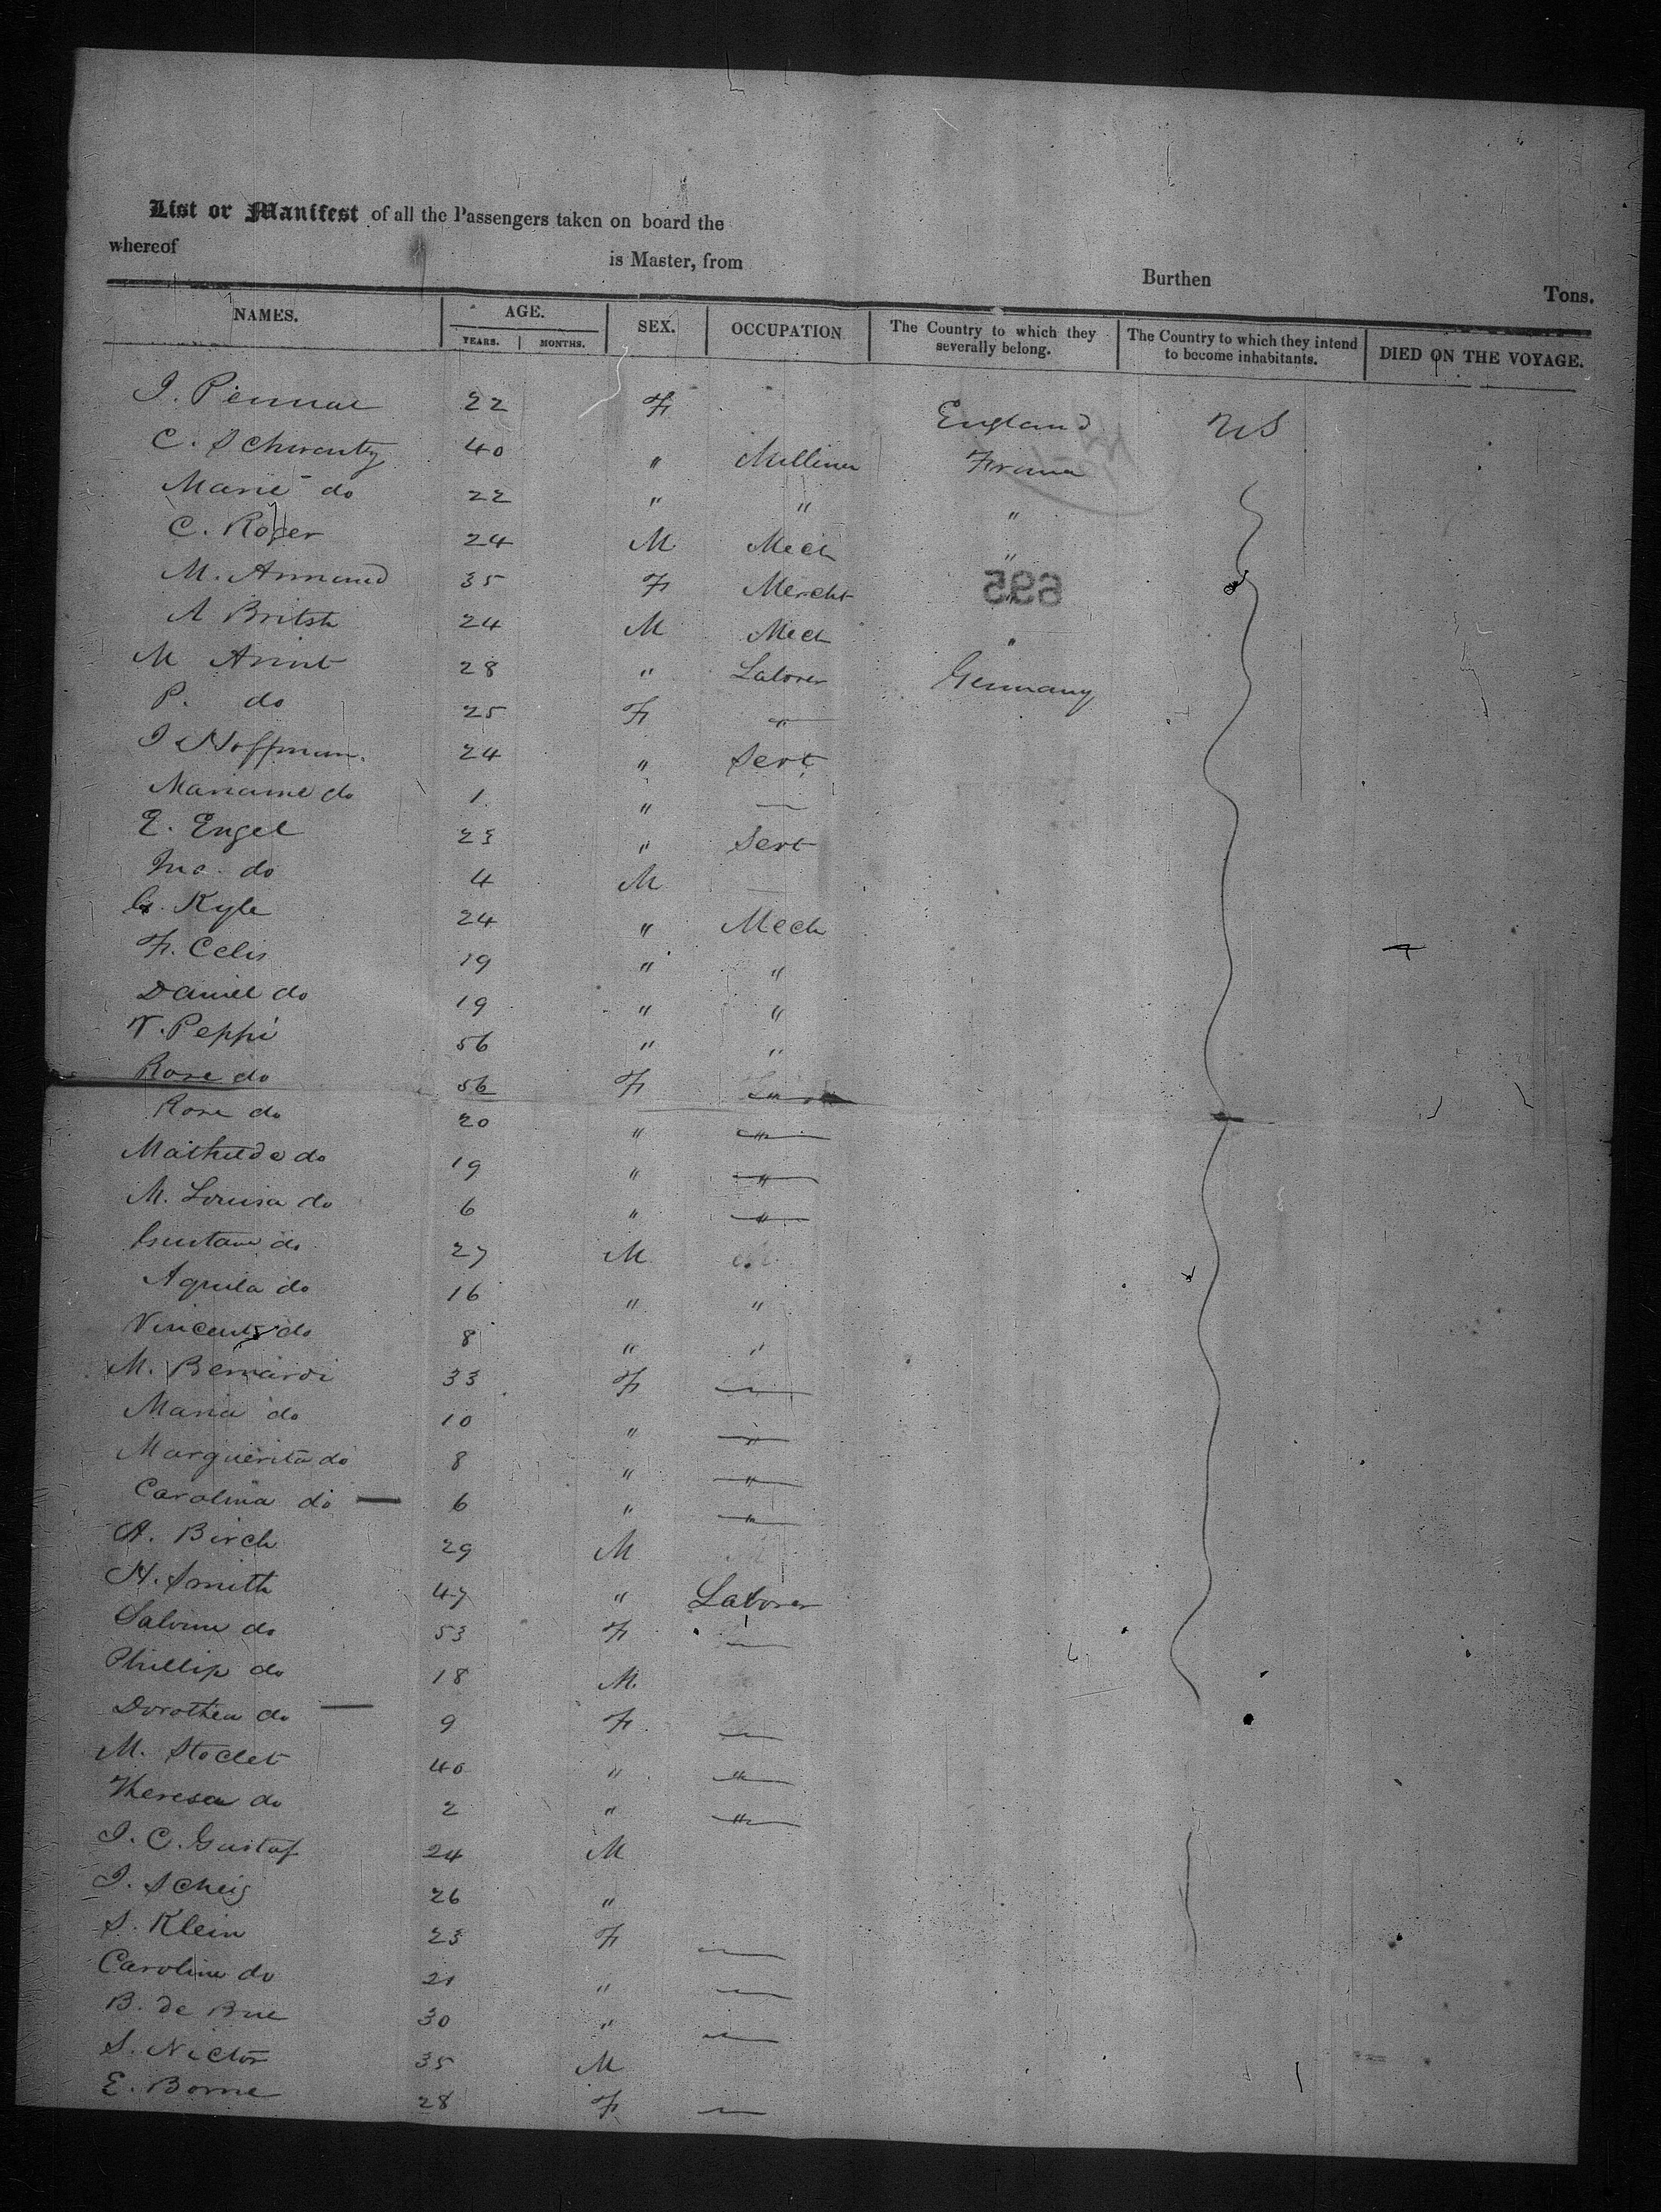 List or Manifest of all the Passengers taken on board the
whereof is Master, from Burthen Tons.
NAMES. AGE. SEX. OCCUPATION The Country to which they severally belong. The Country to which they intend to become inhabitants. DIED ON THE VOYAGE.
YEARS. MONTHS.
22 F England US
C. Schwartz 40 " Milliner
Marie do 22 " " "
C. 24 M Mech "
M. Armand 35 F Mercht
A British 24 M Mech "
M 28 " Laborer Germany
P. do 25 F "
J Hoffman. 24 " Servt
Marianne do 1 " —
E. Engel 23 " Servt
Jno. do 4 M —
G. Kyle 24 " Mech
F. Celis 19 " "
Daniel do 19 " "
V. Peppi 56 " "
Rose do 56 F
Rose do 20 " "
Mathilde do 19 " "
M. Louisa do 6 " "
Gustave do 27 M M
Aquila do 16 " "
Vincent do 8 " "
M. Bernardi 33 F —
Maria do 10 " "
Marguerita do 8 " "
Carolina do — 6 " "
A. Birch 29 M M
H. Smith 47 " Laborer
Salvina do 53 F —
Phillip do 18 M.
Dorothea do — 9 F —
M. Stoclet 40 " "
Theresa do 2 " "
J. C. Gustaf 24 M
J. Scheig 26 "
S. Klein 23 F —
Caroline do 21 " —
B. de Bue 30 " —
S. Nictor 35 M
E. Borne 28 F —
695